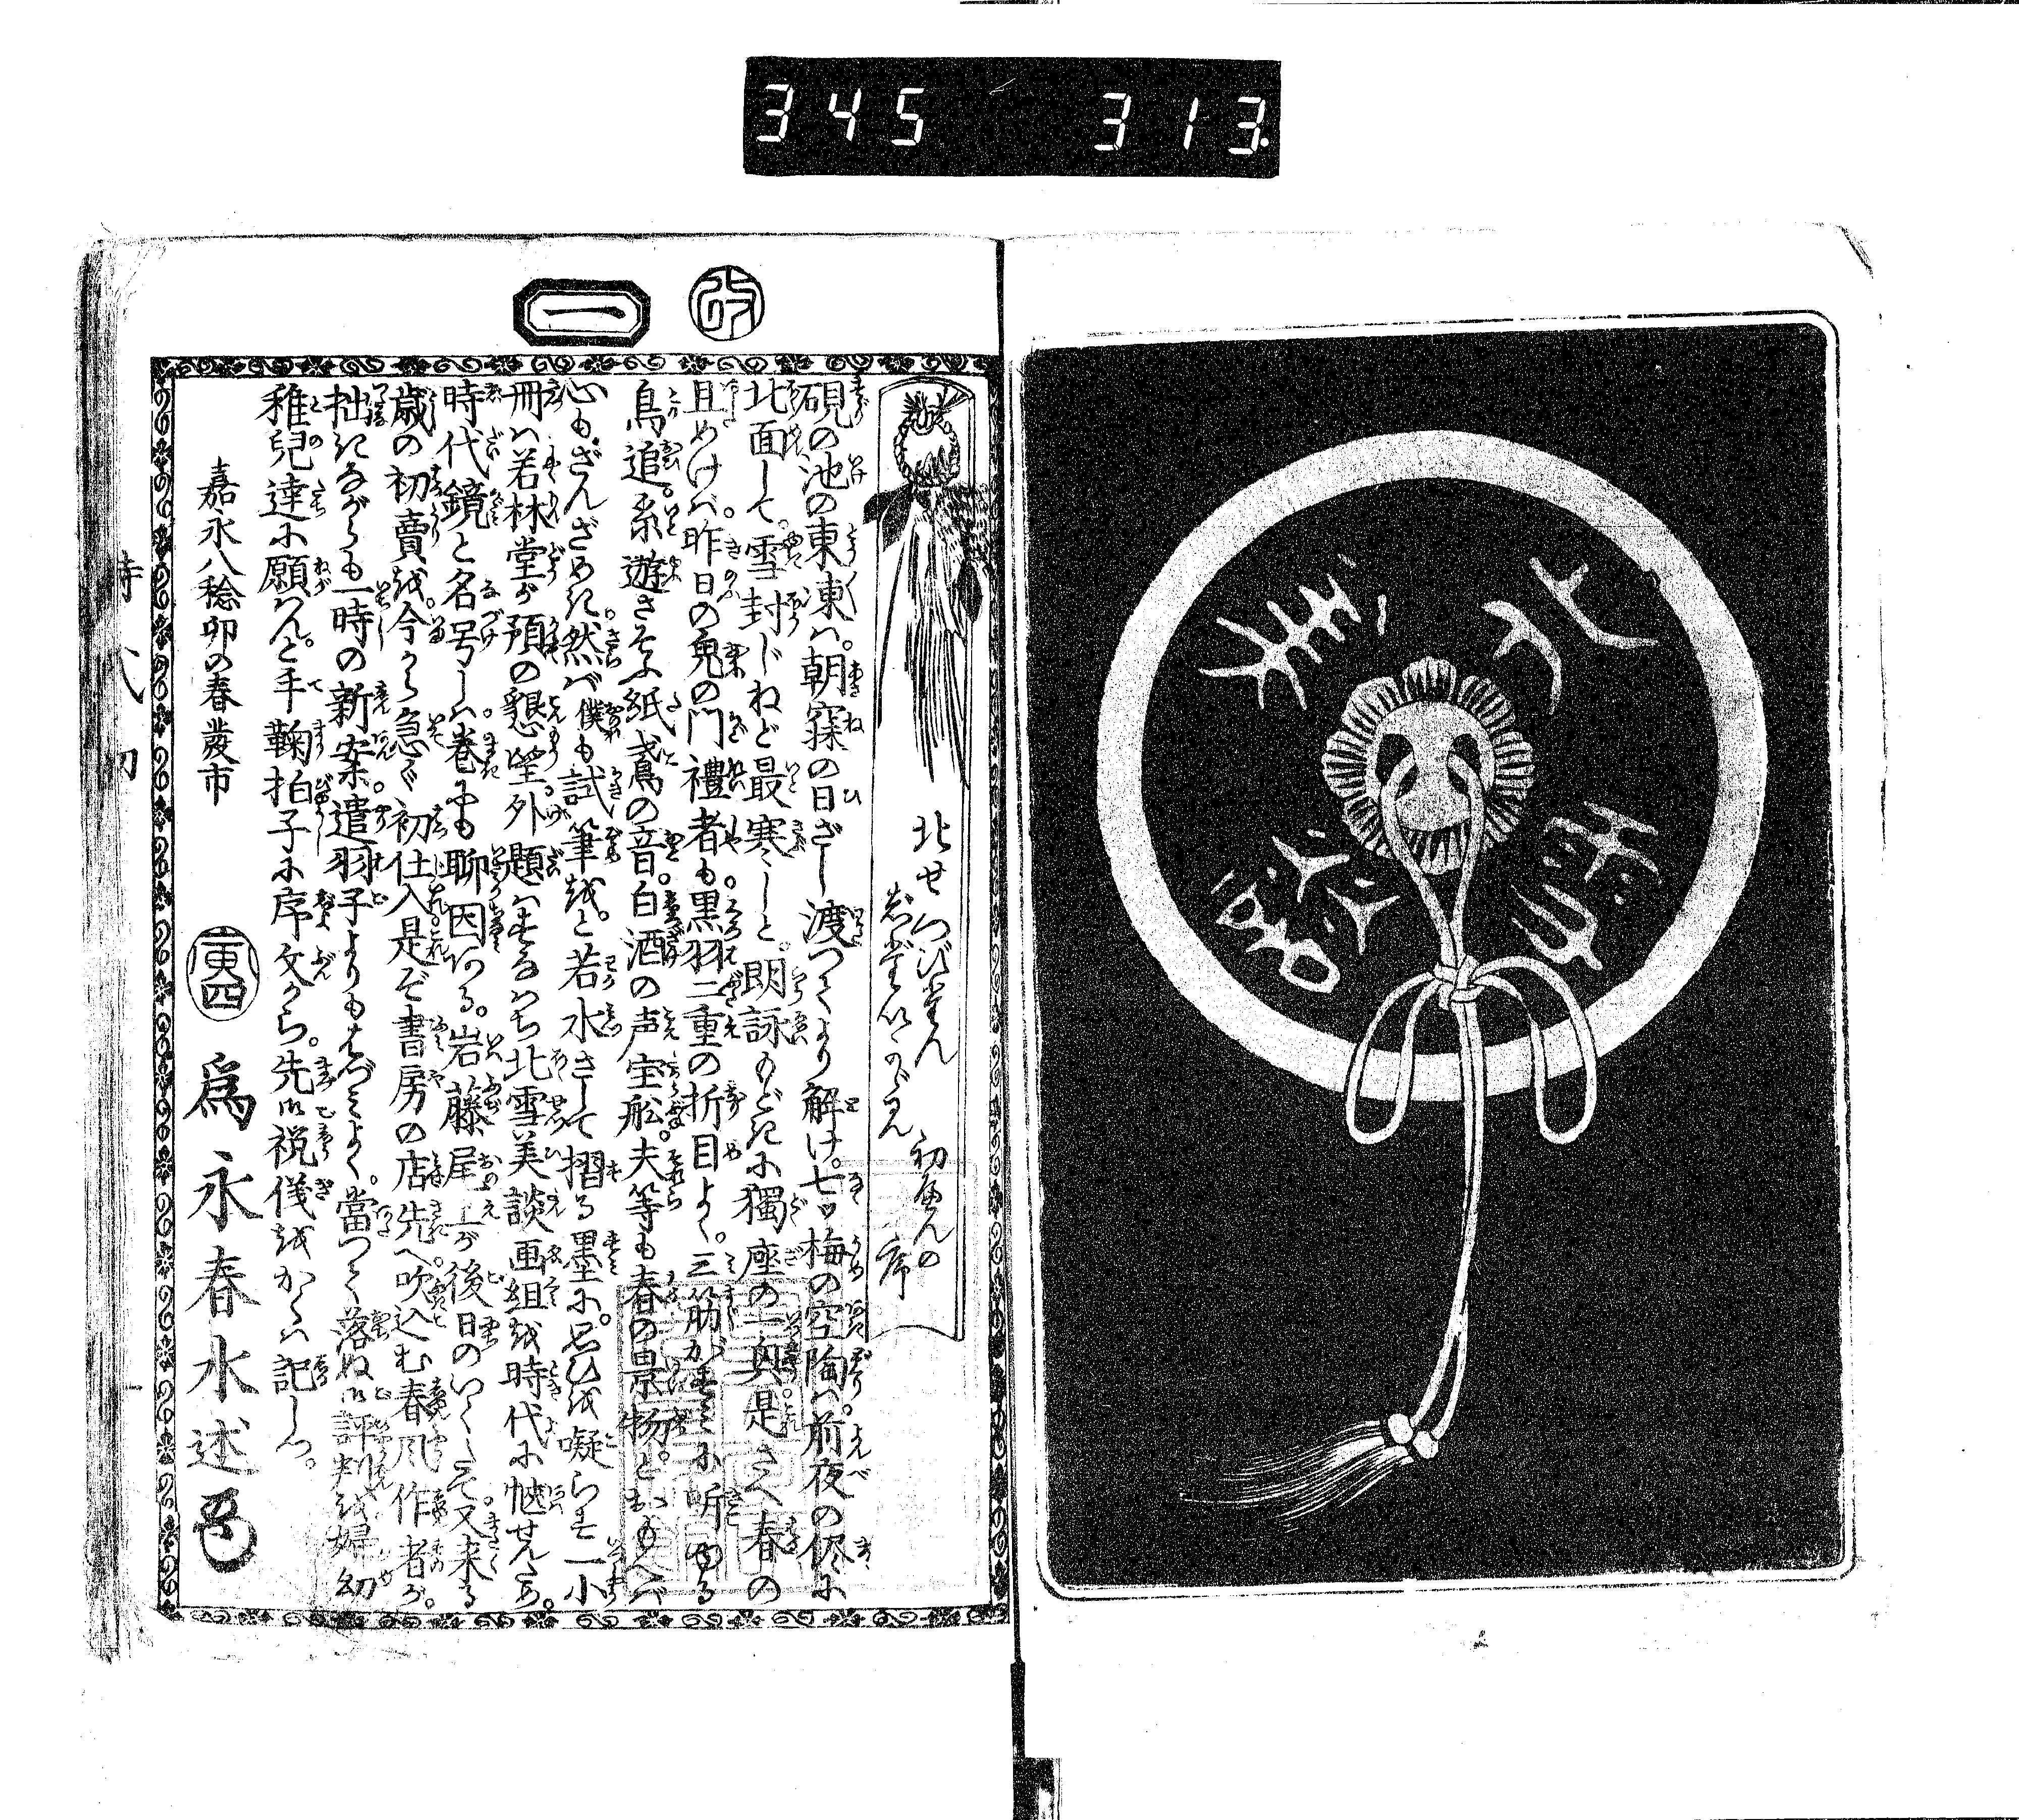 345 313
北雪美談
改
一
北せつびだん 初へんの序
硯の池の東凍ハ。朝寐の日ざし渡つてより解け。七ツ梅の空陶ハ。前夜の侭に
北面して。雪封じねど最寒しと。朗詠もどきに獨座の一興。是さへ春の
且めけバ。昨日の鬼の門禮者も。黒羽二重の折目よく。三筋がすみに听ゆる
鳥追。糸遊さそふ紙鳶の音。白酒の声宝舩。夫等も春の景物。とおもへバ
心もざんざめき。然バ僕も試筆を。と若水さして摺る墨に。思ひを凝らす一小
冊ハ若林堂が預の懇望。外題ハすなはち北雪美談画組を時代に
時代鏡と名号しハ。巻中も聊因ある。岩藤尾上が後日の又来る
歳の初賣を。今から急ぐ初仕入是ぞ書房の店先へ。吹込む春風作者が。
拙きながらも一時の新案。遣羽子よりもはづミよく。當つて落ぬ評判を婦幼
稚兒達に願はんと。手鞠拍子に序文から。先御祝儀をかくハ記しつ。
嘉永八稔卯の春發市
爲永春水述
時代 初